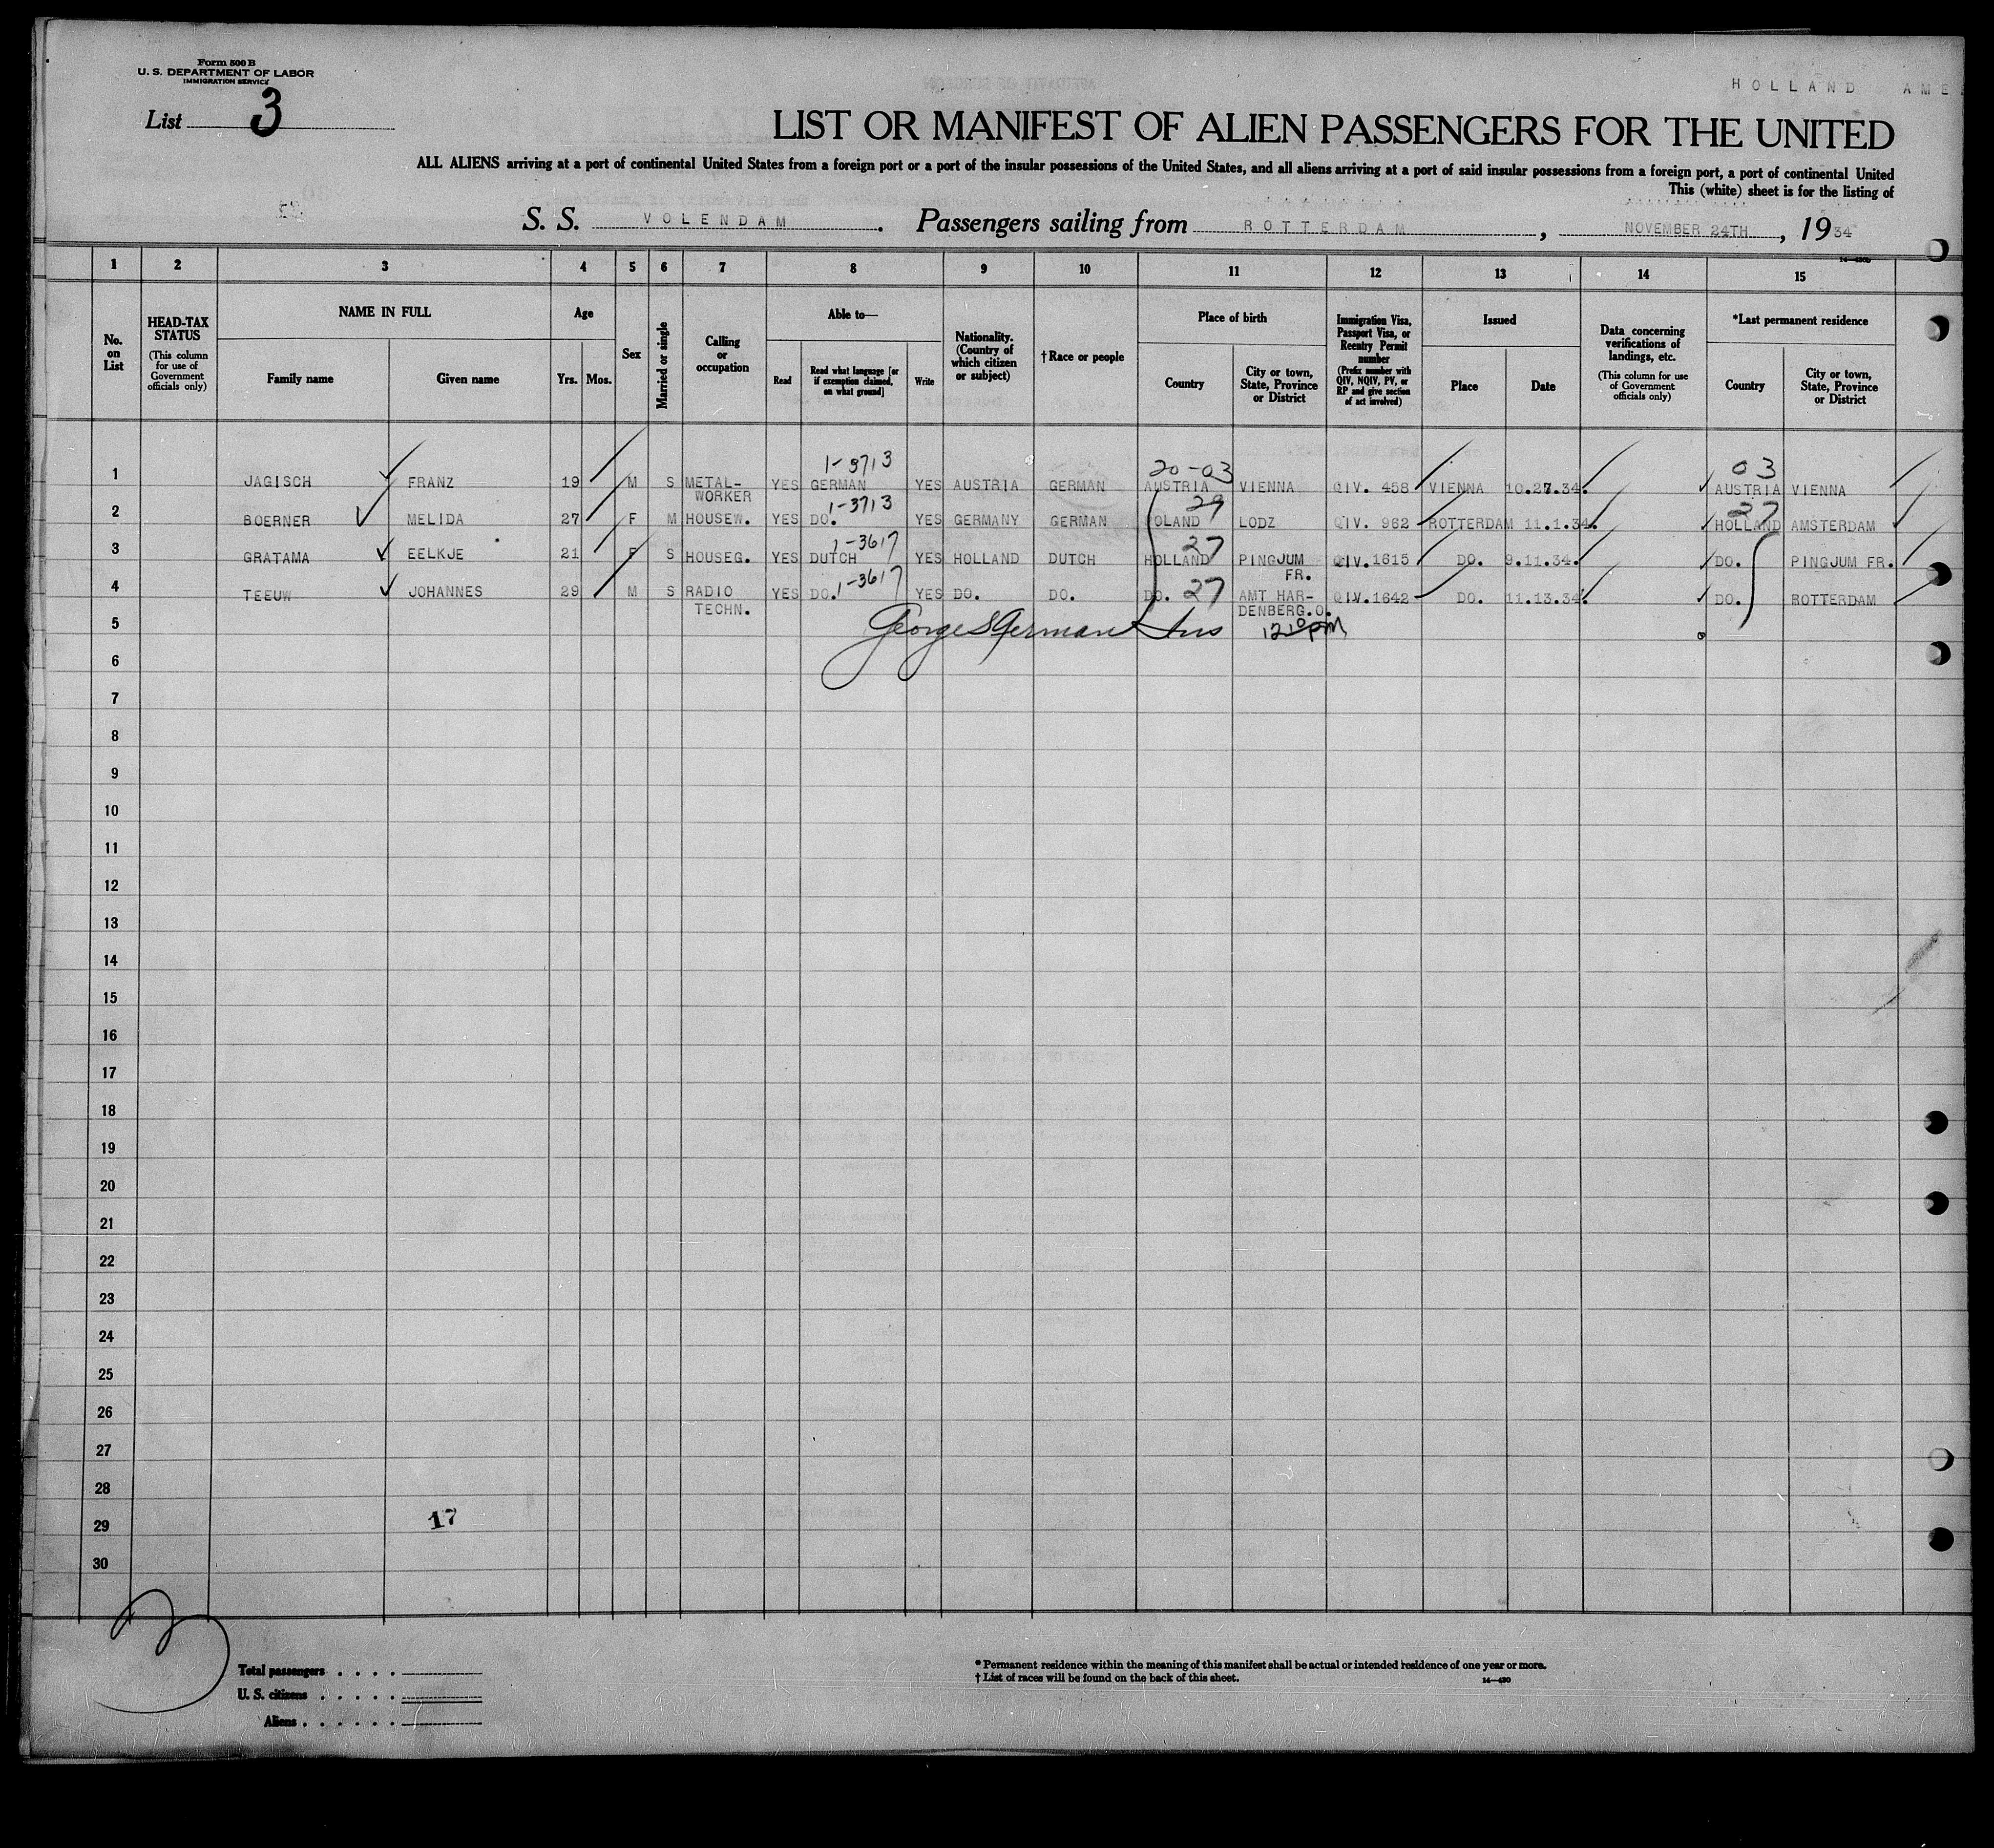 Form 500 B
U. S. DEPARTMENT OF LABOR
IMMIGRATION SERVICE
HOLLAND AME
List 3
LIST OR MANIFEST OF ALIEN PASSENGERS FOR THE UNITED
ALL ALIENS arriving at a port of continental United States from a foreign port or a port of the insular possessions of the United States, and all aliens arriving at a port of said insular possessions from a foreign port, a port of continental United
This (white) sheet is for the listing of
S. S. VOLENDAM. Passengers sailing from ROTTERDAM, NOVEMBER 24TH, 1934
1 2 3 4 5 6 7 8 9 10 11 12 13 14 15
No. on List
HEAD-TAX STATUS (This column for use of Government officials only)
NAME IN FULL
Family name Given name
Age
Yrs. Mos.
Sex
Married or single
Calling or occupation
Able to—
Read
Read what language [or if exemption claimed, on what ground]
Write
Nationality. (Country of which citizen or subject)
†Race or people
Place of birth
Country
City or town, State, Province or District
Immigration Visa, Passport Visa, or Reentry Permit number (Prefix number with QIV, NQIV, PV, or RP and give section of act involved)
Issued
Place Date
Data concerning verifications of landings, etc. (This column for use of Government officials only)
*Last permanent residence
Country
City or town, State, Province or District
1-3713 20-03 03
1 JAGISCH FRANZ 19 M S METAL-WORKER YES GERMAN YES AUSTRIA GERMAN AUSTRIA VIENNA QIV. 458 VIENNA 10.27.34. AUSTRIA VIENNA
1-3713 29 27
2 BOERNER MELIDA 27 F M HOUSEW. YES DO. YES GERMANY GERMAN POLAND LODZ QIV. 962 ROTTERDAM 11.1.34. HOLLAND AMSTERDAM
1-3617 27
3 GRATAMA EELKJE 21 F S HOUSEG. YES DUTCH YES HOLLAND DUTCH HOLLAND PINGJUM FR. QIV.1615 DO. 9.11.34. DO. PINGJUM FR.
1-3617 27
4 TEEUW JOHANNES 29 M S RADIO TECHN. YES DO. YES DO. DO. DO. AMT HAR-DENBERG.O. QIV.1642 DO. 11.13.34. DO. ROTTERDAM
5 George S German Ins 12 10 PM
6
7
8
9
10
11
12
13
14
15
16
17
18
19
20
21
22
23
24
25
26
27
28
29 17
30
Total passengers . . . .
U. S. citizens . . . . .
Aliens . . . . . .
* Permanent residence within the meaning of this manifest shall be actual or intended residence of one year or more.
† List of races will be found on the back of this sheet.
14—430